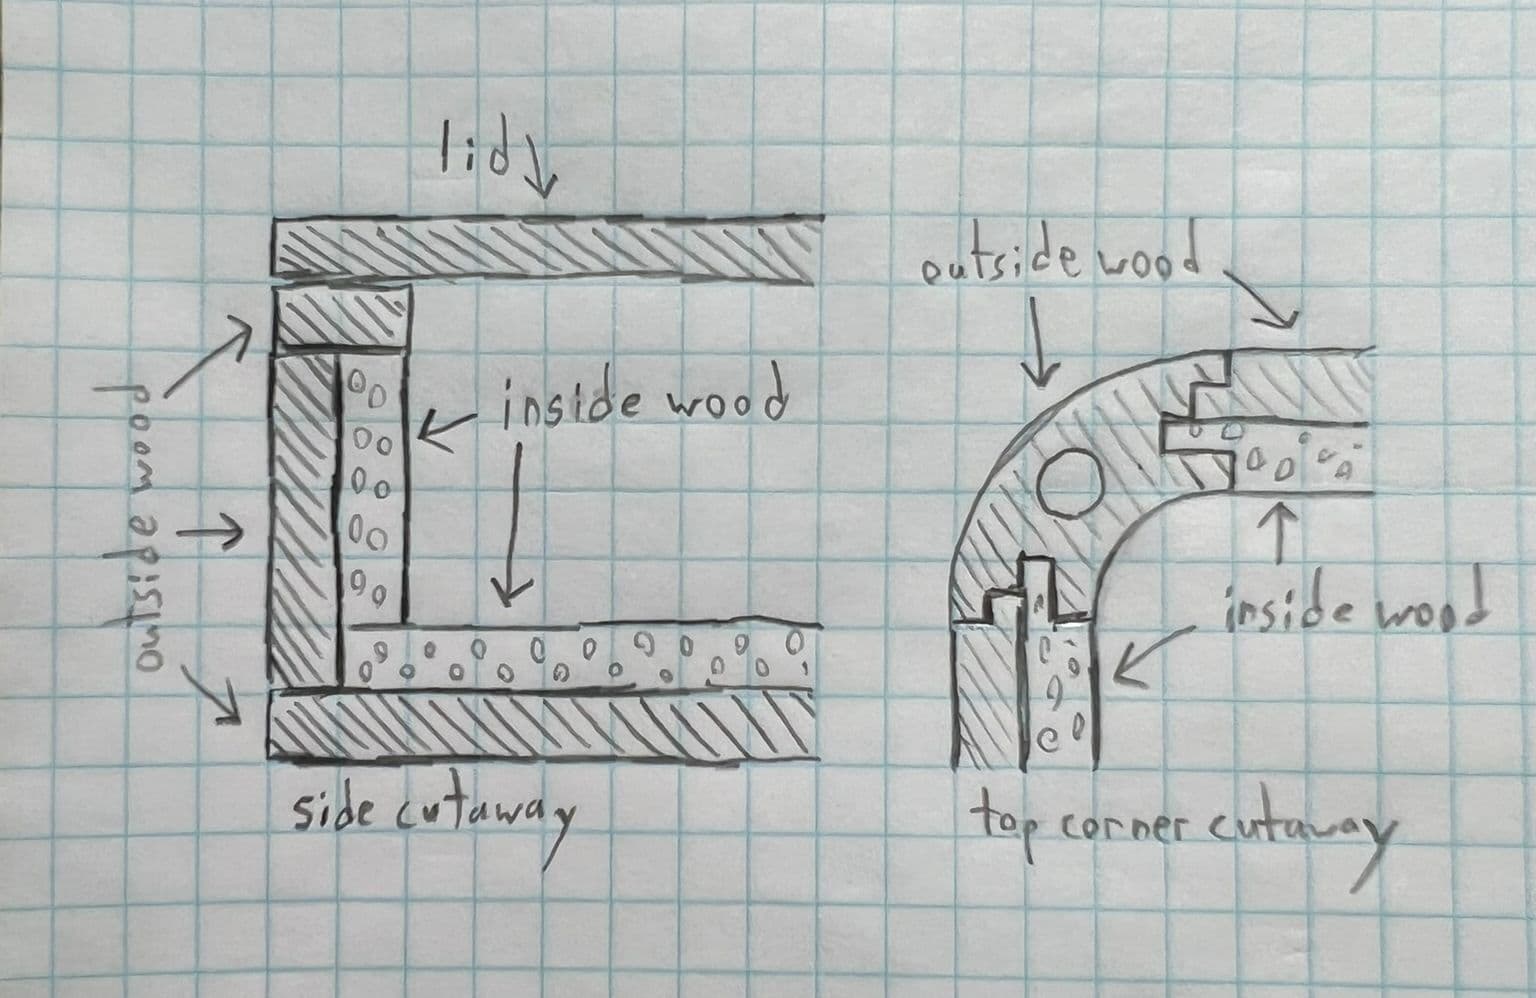 lid
outside wood
outside wood
inside wood
inside wood
side cutaway
top corner cutaway